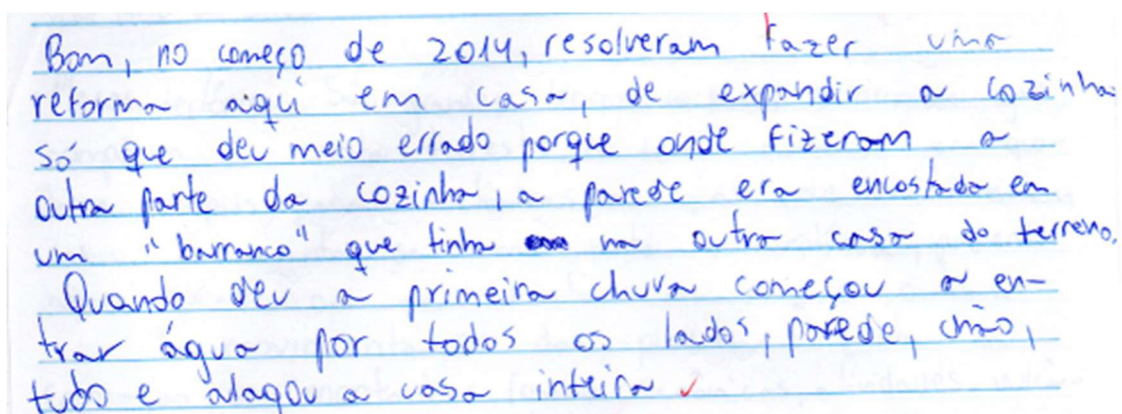 Bom, no começo de 2014, resolveram fazer uma
reforma aqui em casa, de expandir a cozinha
só que deu meio errado porque onde fizeram a
outra parte da cozinha, a parede era encostada em
um "barranco" que tinha na outra casa do terreno.
Quando deu a primeira chuva começou a en-
trar água por todos os lados, parede, chão,
tudo e alagou a casa inteira